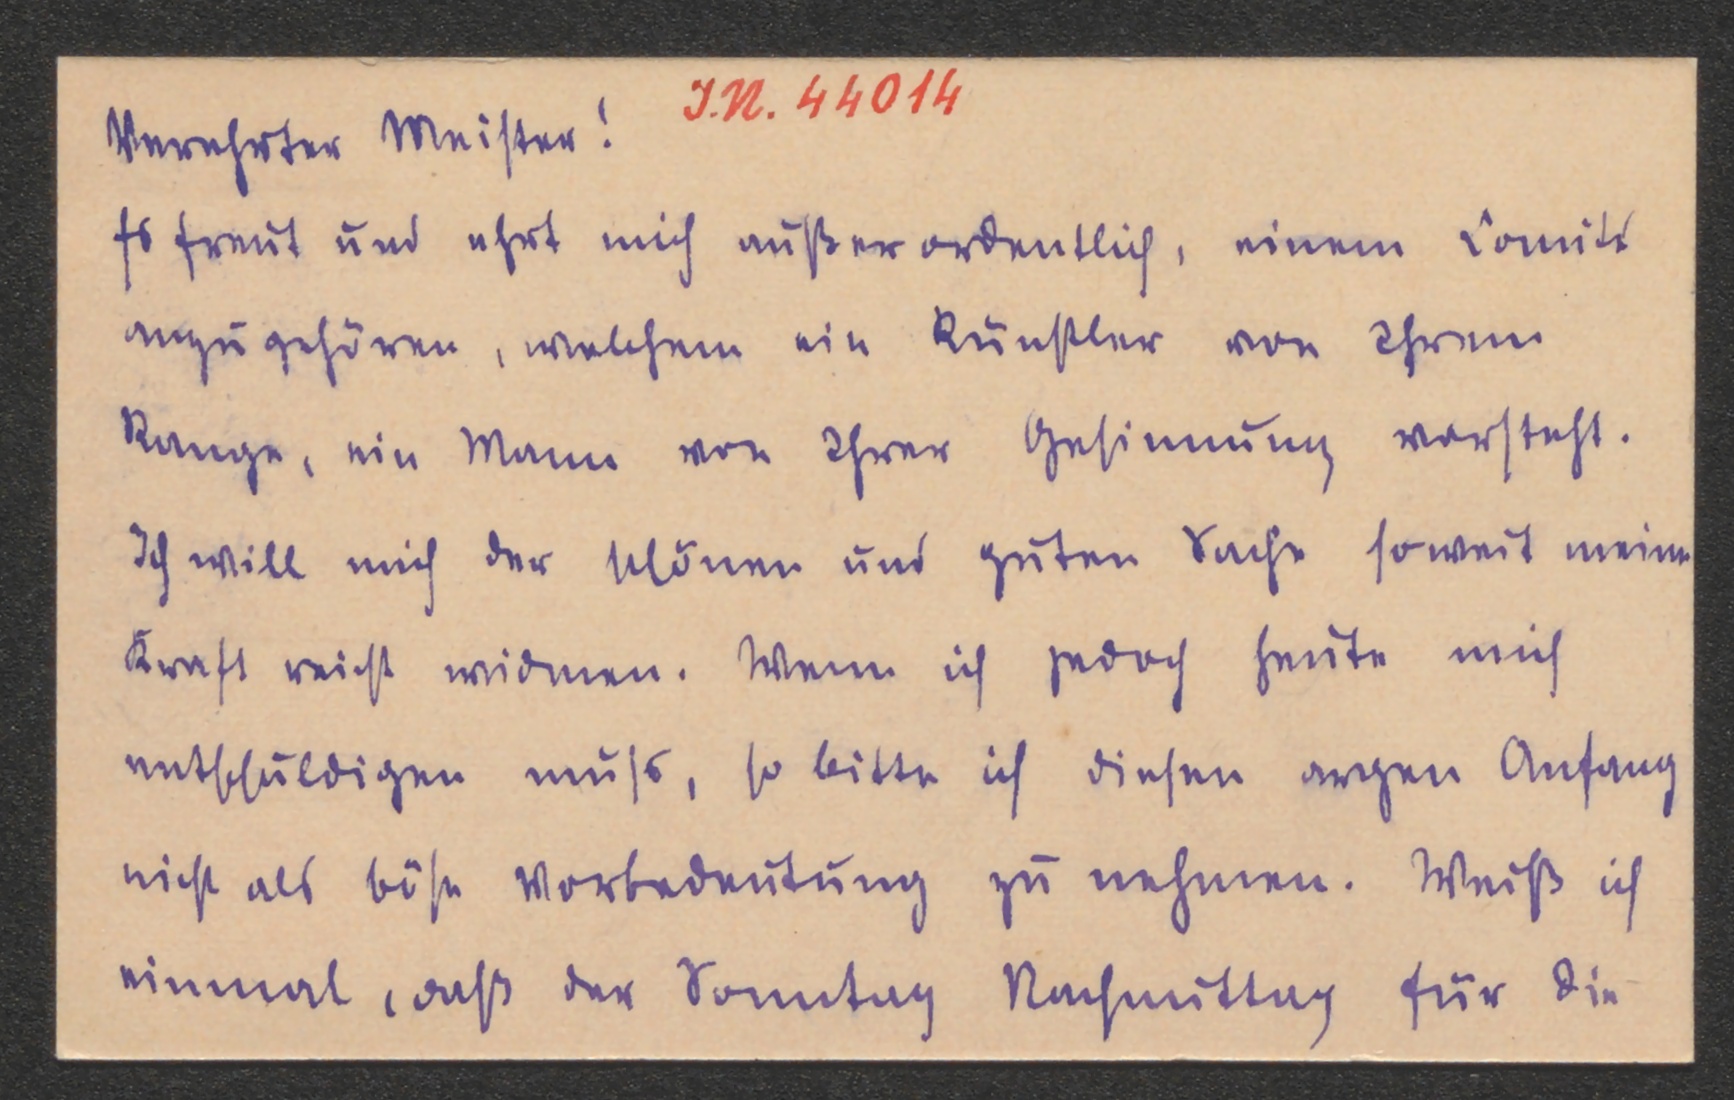 I.N. 44014
Verehrter Meister!
Es freut und ehrt mich außerordentlich, einem Comité
anzugehören, welchem ein Künstler von Ihrem
Range, ein Mann von Ihrer Gesinnung vorsteht.
Ich will mich der schönen und guten Sache soweit meine
Kraft reicht widmen. Wenn ich jedoch heute mich
entschuldigen muss, so bitte ich diesen argen Anfang
nicht als böse Vorbedeutung zu nehmen. Weiß ich
einmal, daß der Sonntag Nachmittag für die